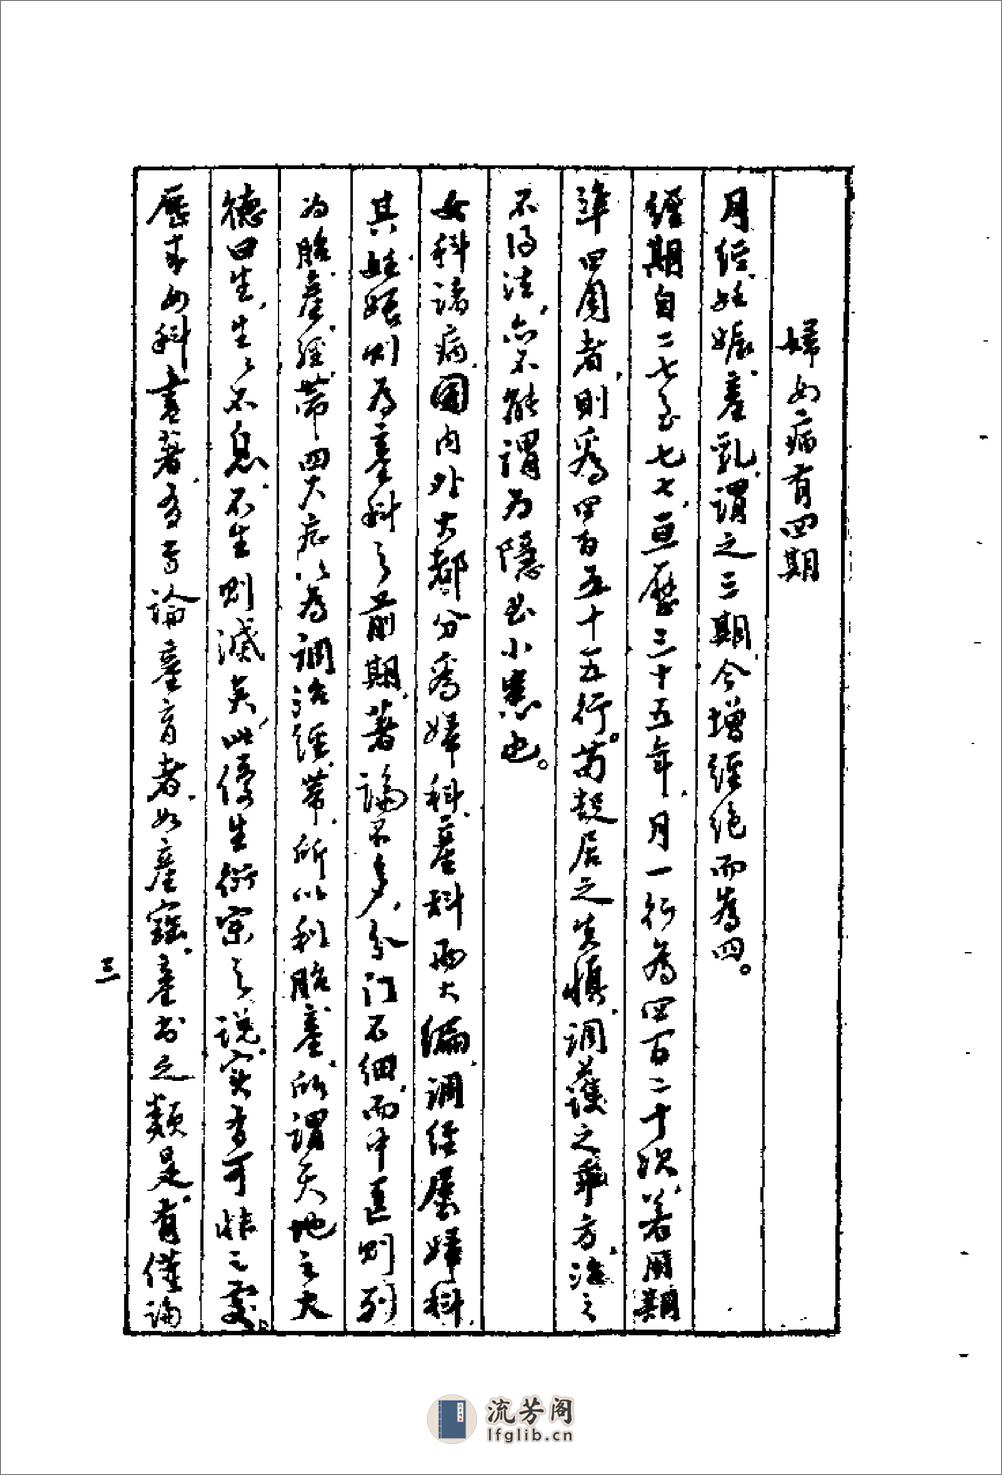 婦女病有四期
月经、妊娠、產乳、謂之三期、今增經绝而為四。
經期自二七至七七、亘歷三十五年、月一行為四百二十次、若周期
準四周者、則爲四百五十五行。苟起居之失慎、調護之乖方、治之
不得法、亦不能謂为隱曲小患也。
女科諸病、國内外大都分爲婦科、產科兩大编、調经属婦科、
其妊娠则为產科之前期、著論不多、分门不细、而中医则列
为胎、產、經、帶四大症、以为調治經、帶、所以利胎產、所謂天地之大
德曰生、生々不息、不生则滅矣、此優生衍宗之说、實有可非之處、
歷来女科書著、多专論產育者、如產寳、產书之類是、有僅論
三
流芳阁
lfglib.cn